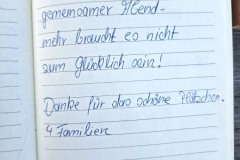 gemeinsamer Abend -
mehr braucht es nicht
zum Glücklich sein!
Danke für das schöne Plätzchen.
4 Familien